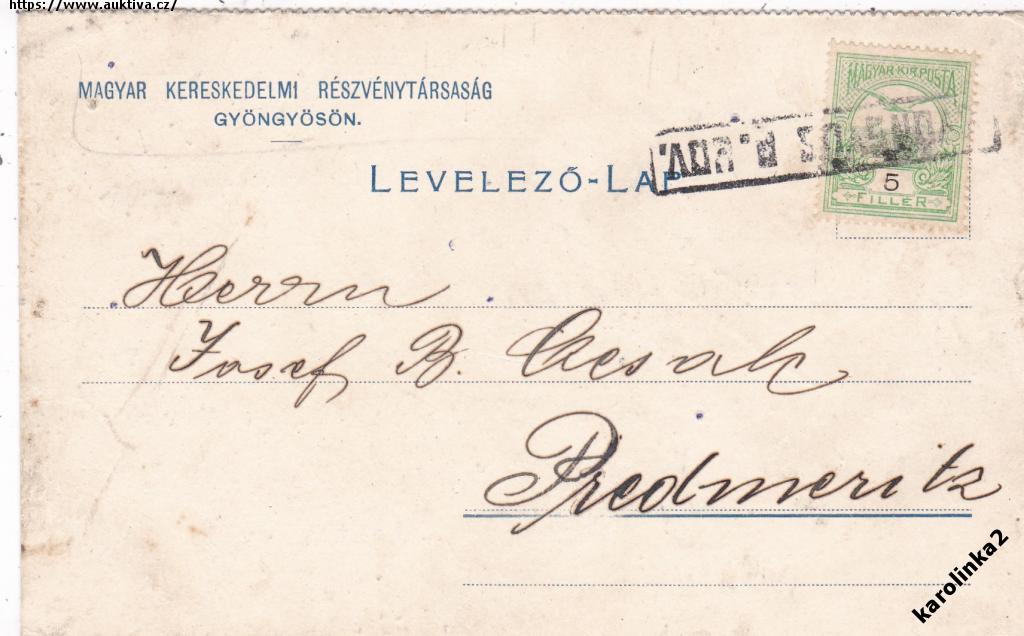 https://www.auktiva.cz/
MAGYAR KERESKEDELMI RÉSZVÉNYTÁRSASÁG
GYÖNGYÖSÖN.
LEVELEZŐ-LAP
MAGYAR KIR. POSTA
5
FILLÉR
P. UDV.
Herrn
Josef B.
Predmeritz
karolinka2